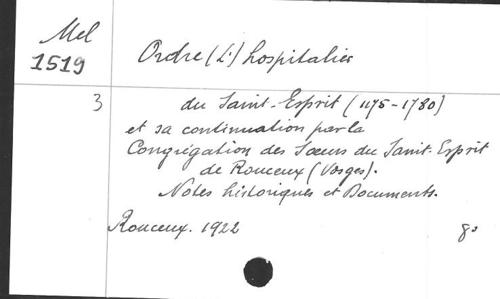 Mel
1519
Ordre (L') hospitalier
3 du Saint-Esprit (1175-1780)
et sa continuation par la
Congrégation des Sœurs du Saint-Esprit
de Rouceux (Vosges).
Notes historiques et Documents.
Rouceux. 1922 8°